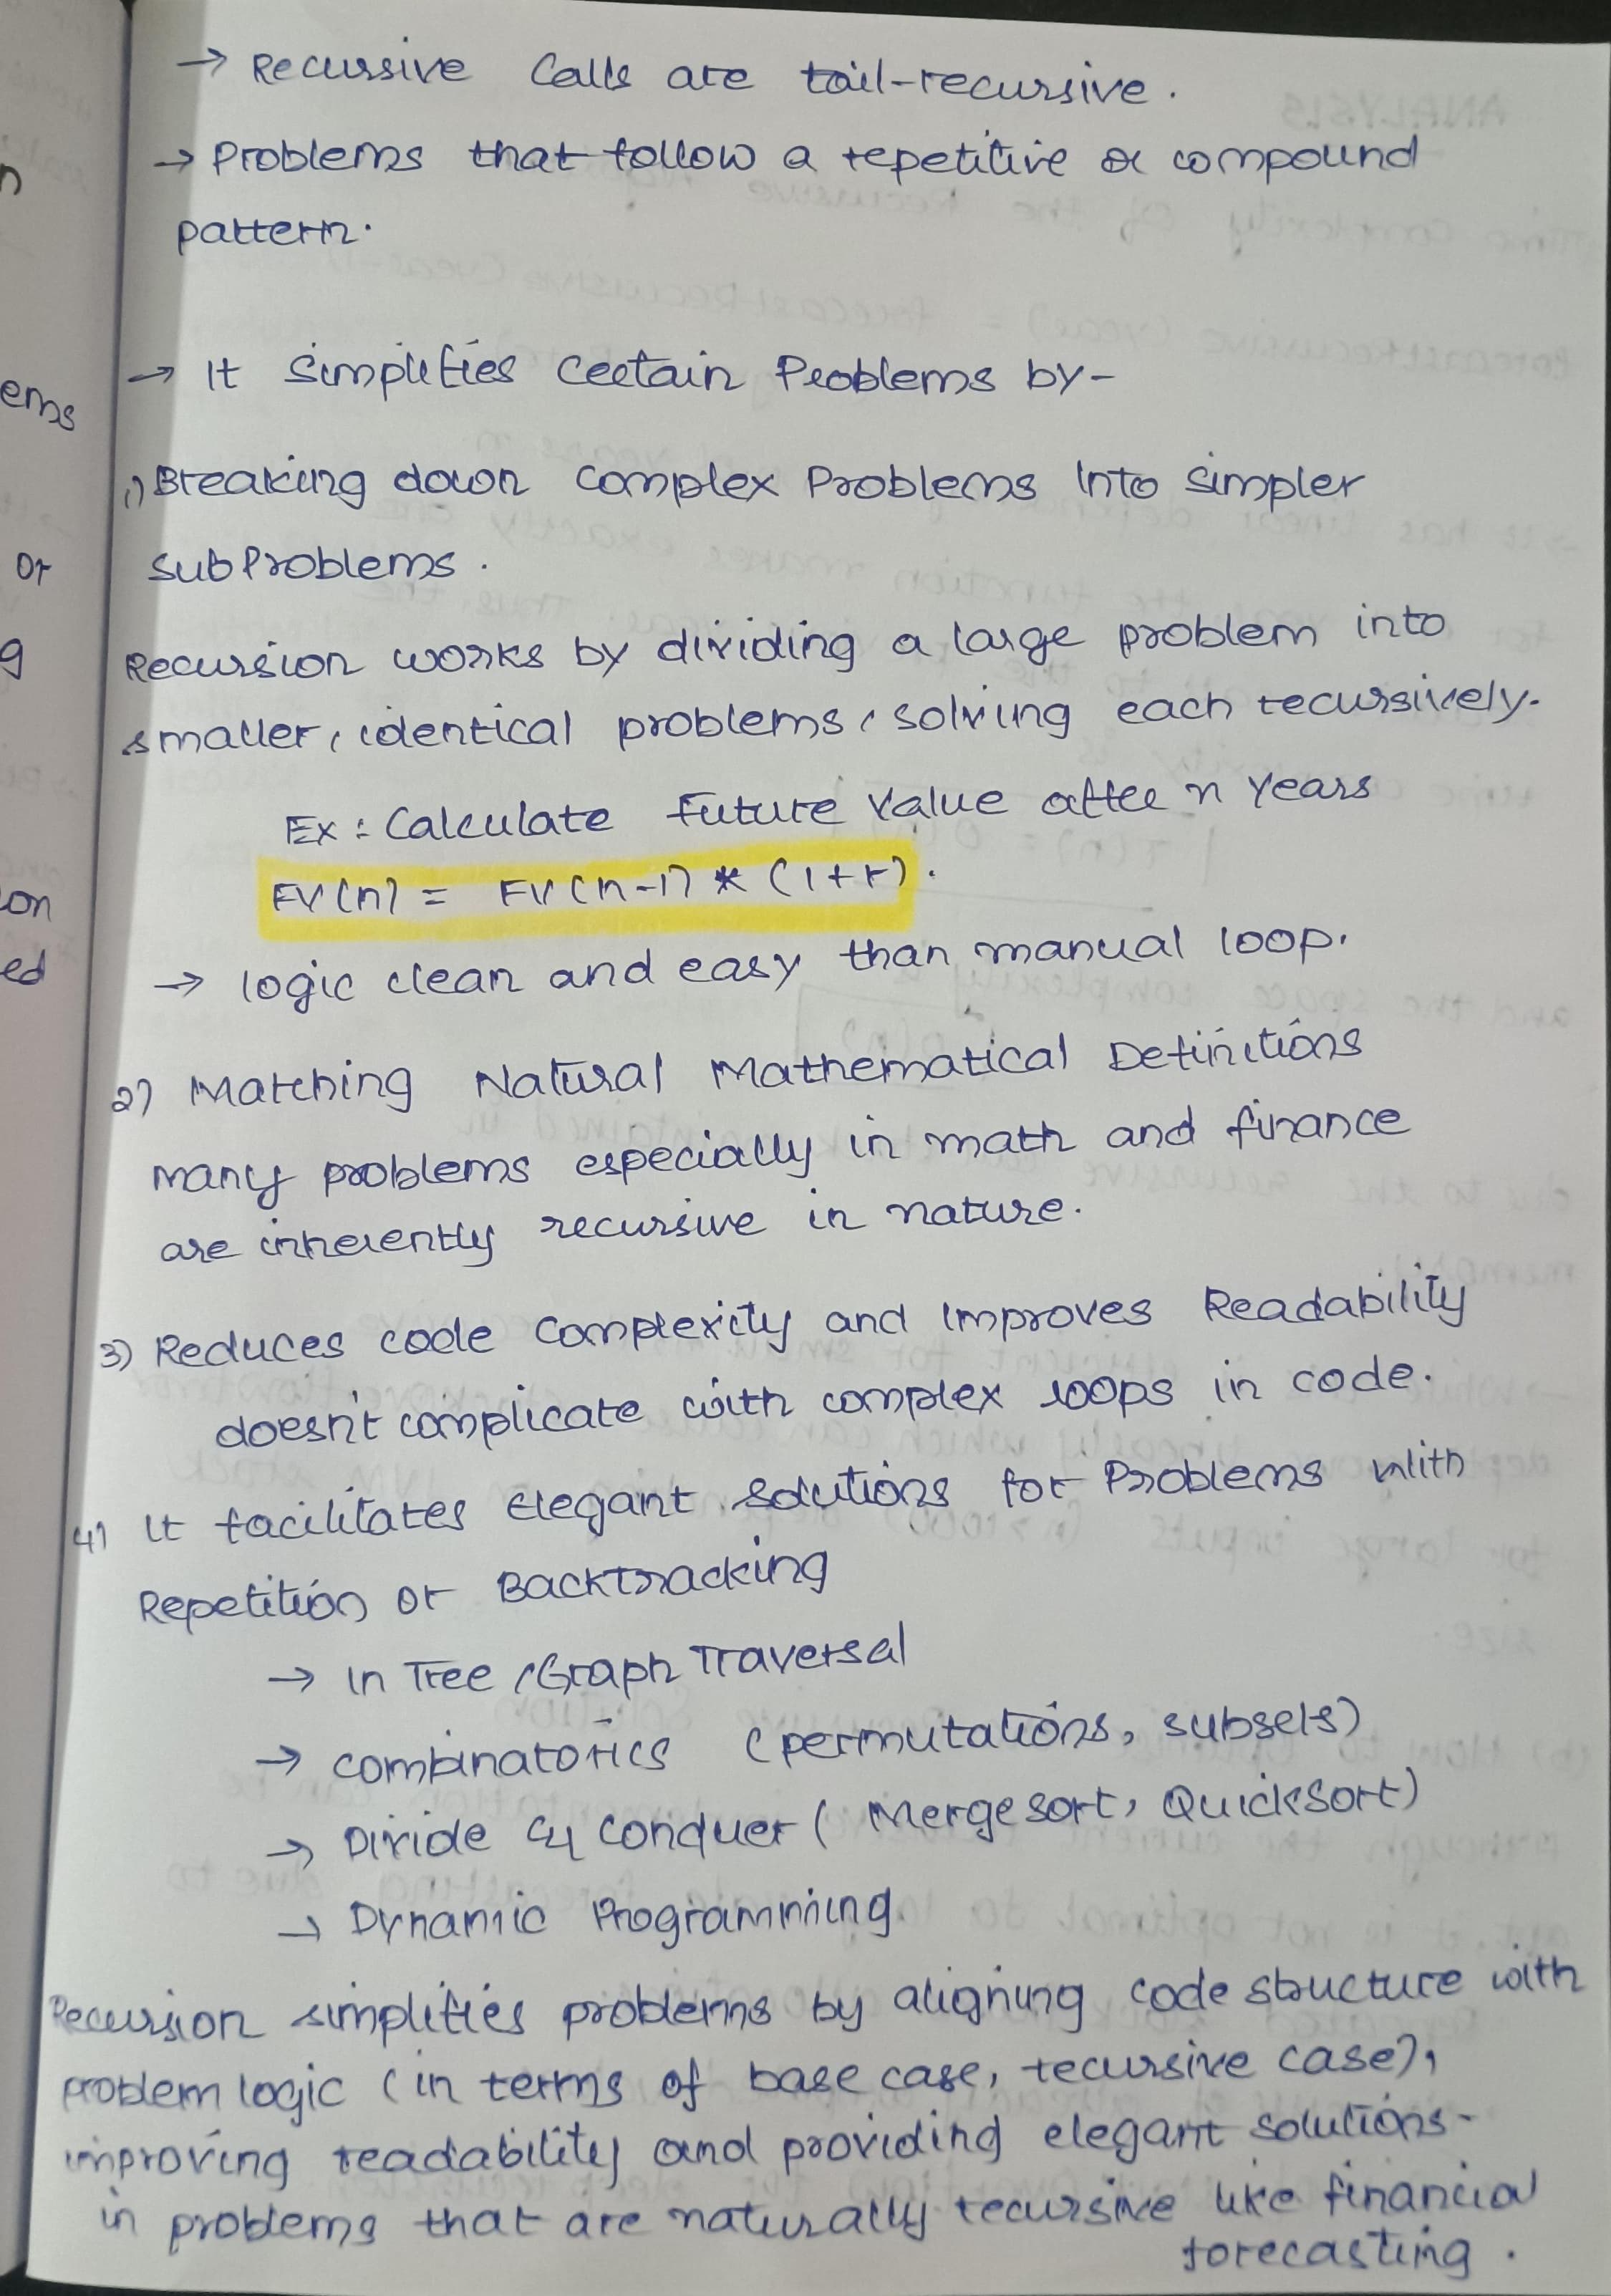 → Recursive Calls are tail-recursive.
→ Problems that follow a repetitive or compound
pattern.
→ It Simplifies Certain Problems by-
1) Breaking down complex Problems Into simpler
subProblems.
Recursion works by dividing a large problem into
smaller, identical problems, solving each recursively.
Ex: Calculate Future Value after n Years
FV(n) = FV(n-1) * (1+r).
→ logic clean and easy than manual loop.
2) Matching Natural Mathematical Definitions
many problems especially in math and finance
are inherently recursive in nature.
3) Reduces code complexity and Improves Readability
doesn't complicate with complex loops in code.
4) It facilitates Elegant Solutions for Problems With
Repetition or Backtracking
→ In Tree /Graph Traversal
→ combinatorics (permutations, subsets)
→ Divide & Conquer (Merge sort, QuickSort)
→ Dynamic Programming.
Recursion simplifies problems by aligning code structure with
problem logic (in terms of base case, recursive case),
improving readability and providing elegant solutions-
in problems that are naturally recursive like financial
forecasting.
n
ems
or
g
ion
ed